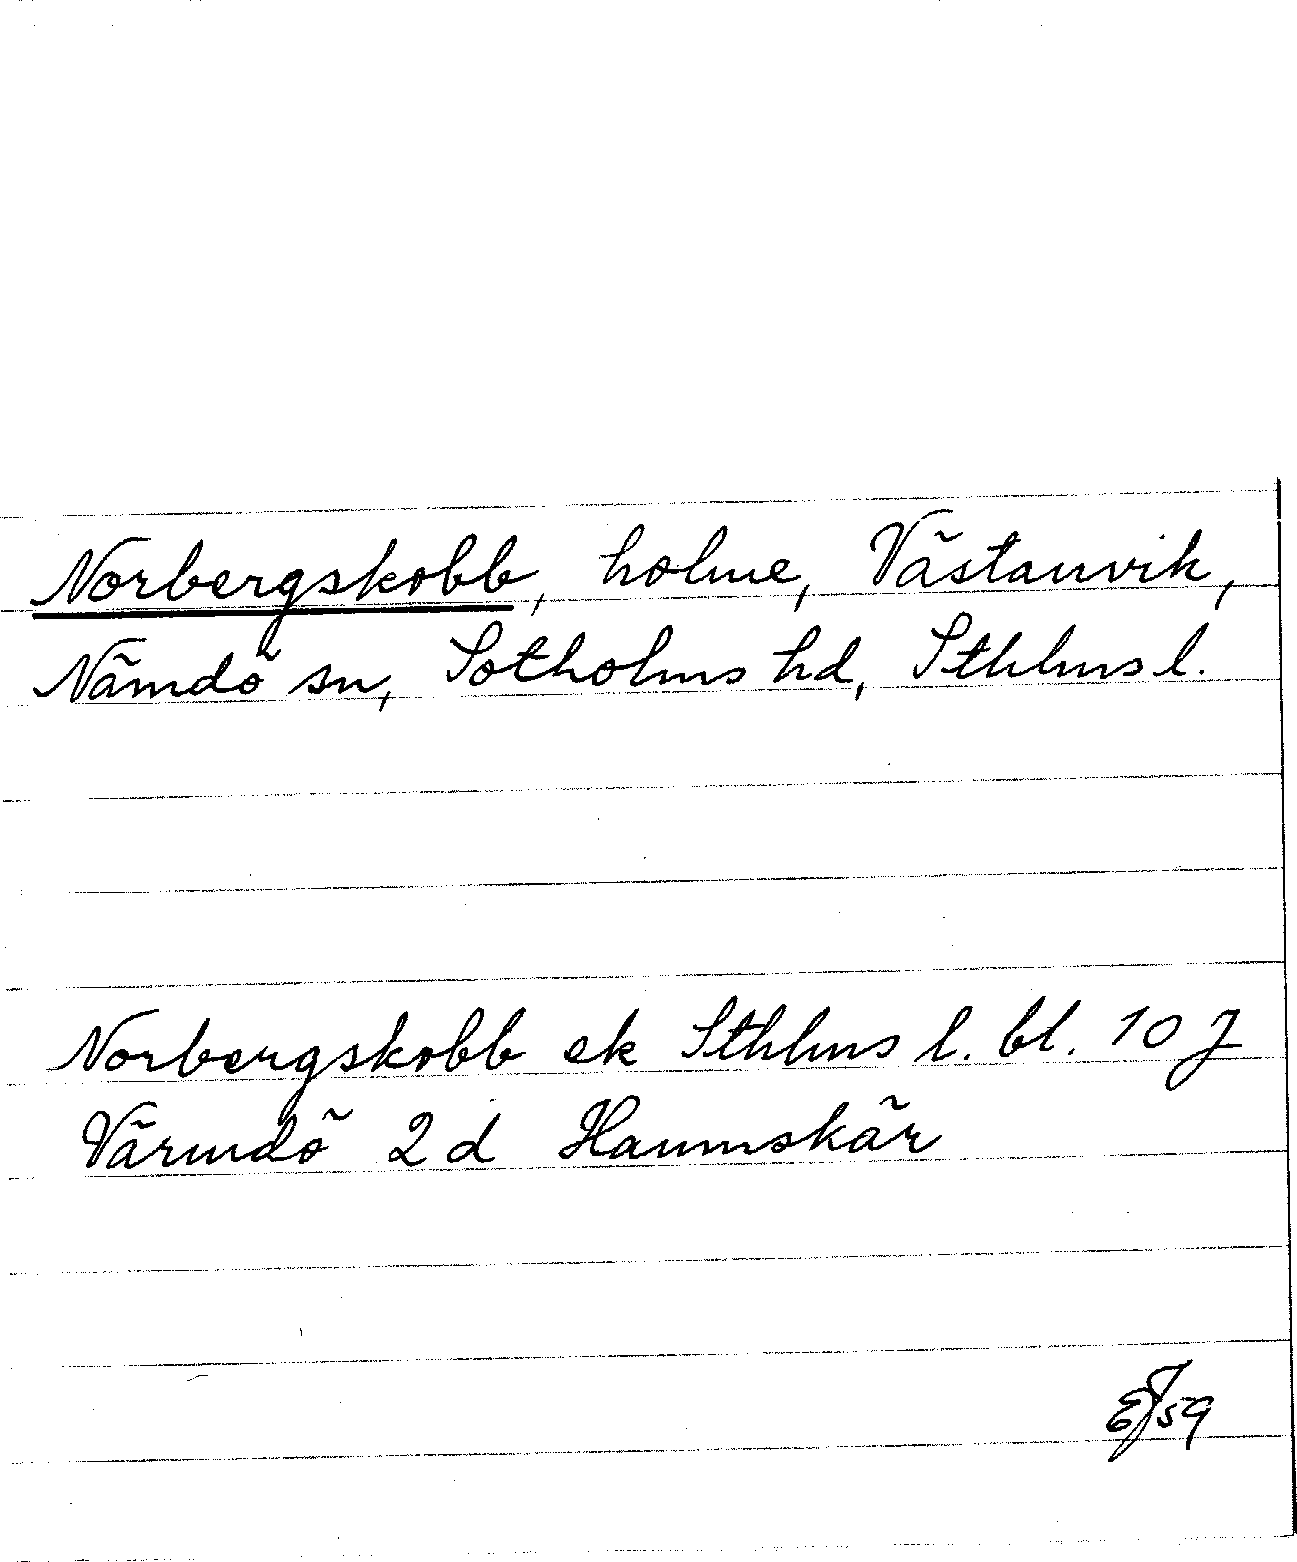 Norbergskobb, holme, Västanvik,
Nämdö sn, Sotholms hd, Sthlms l.
Norbergskobb ek Sthlms l. bl. 10 J
Värmdö 2d Hamnskär